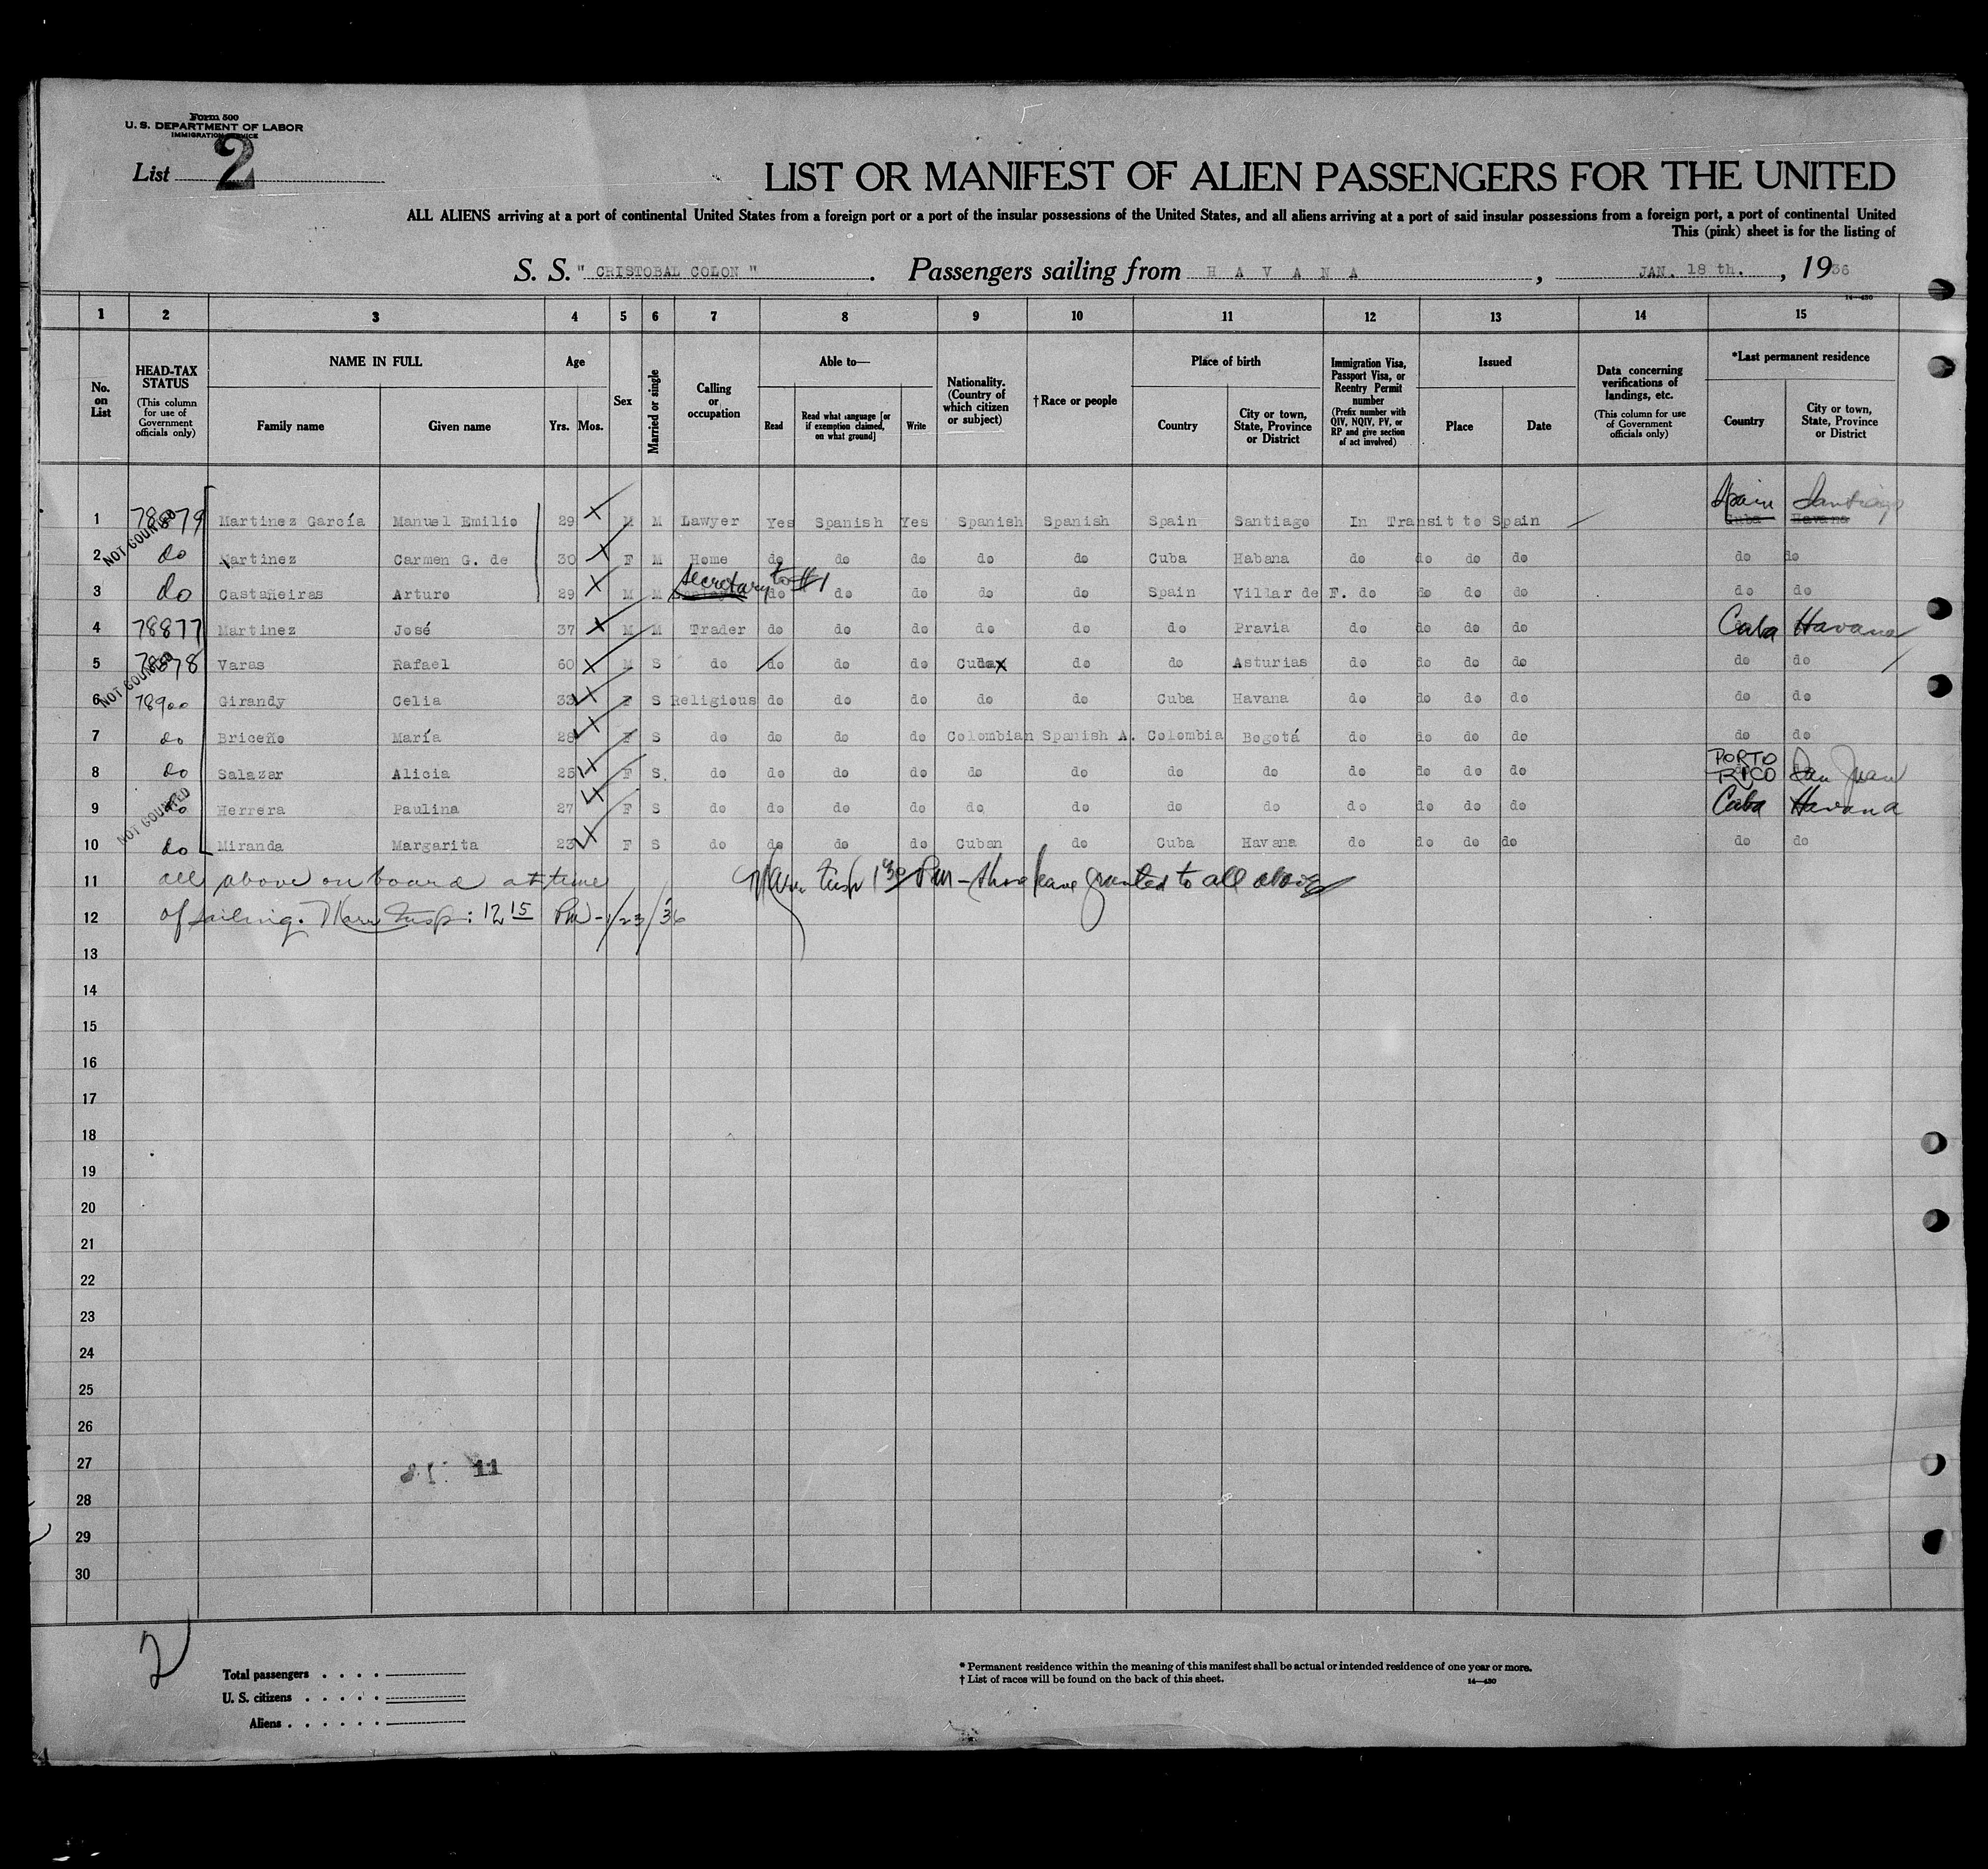 Form 500
U. S. DEPARTMENT OF LABOR
IMMIGRATION SERVICE
List 2
LIST OR MANIFEST OF ALIEN PASSENGERS FOR THE UNITED
ALL ALIENS arriving at a port of continental United States from a foreign port or a port of the insular possessions of the United States, and all aliens arriving at a port of said insular possessions from a foreign port, a port of continental United
This (pink) sheet is for the listing of
S. S. " CRISTOBAL COLON " . Passengers sailing from H A V A N A , JAN. 18 th. , 1936
14—430
1 2 3 4 5 6 7 8 9 10 11 12 13 14 15
No. on List
HEAD-TAX STATUS (This column for use of Government officials only)
NAME IN FULL
Family name Given name
Age
Yrs. Mos.
Sex
Married or single
Calling or occupation
Able to—
Read Read what language [or if exemption claimed, on what ground] Write
Nationality. (Country of which citizen or subject)
†Race or people
Place of birth
Country City or town, State, Province or District
Immigration Visa, Passport Visa, or Reentry Permit number (Prefix number with QIV, NQIV, PV, or RP and give section of act involved)
Issued
Place Date
Data concerning verifications of landings, etc. (This column for use of Government officials only)
*Last permanent residence
Country City or town, State, Province or District
Spain Santiago
1 78879 Martinez García Manuel Emilio 29 M M Lawyer Yes Spanish Yes Spanish Spanish Spain Santiago In Transit to Spain Cuba Havana
NOT COUNTED
2 do Martinez Carmen G. de 30 F M Home do do do do do Cuba Habana do do do do do do
secretary to #1
3 do Castañeiras Arturo 29 M M do do do do do Spain Villar de F. do do do do do do
4 78877 Martinez José 37 M M Trader do do do do do do Pravia do do do do Cuba Havana
5 78878 Varas Rafael 60 M S do do do do Cuba do do Asturias do do do do do do
NOT COUNTED
6 78900 Girandy Celia 33 F S Religious do do do do do Cuba Havana do do do do do do
7 do Briceño María 28 F S do do do do Colombian Spanish A. Colombia Bogotá do do do do do do
8 do Salazar Alicia 25 F S. do do do do do do do do do do do do PORTO RICO San Juan
NOT COUNTED
9 do Herrera Paulina 27 F S do do do do do do do do do do do do Cuba Havana
10 do Miranda Margarita 23 F S do do do do Cuban do Cuba Havana do do do do do do
11 all above on board at time Insp 1 30 PM - shore leave granted to all above
12 of sailing. Insp: 12 15 PM - 1/23/36
13
14
15
16
17
18
19
20
21
22
23
24
25
26
27
11
28
29
30
2
Total passengers . . . .
U. S. citizens . . . . .
Aliens . . . . . .
* Permanent residence within the meaning of this manifest shall be actual or intended residence of one year or more.
† List of races will be found on the back of this sheet.
14—430